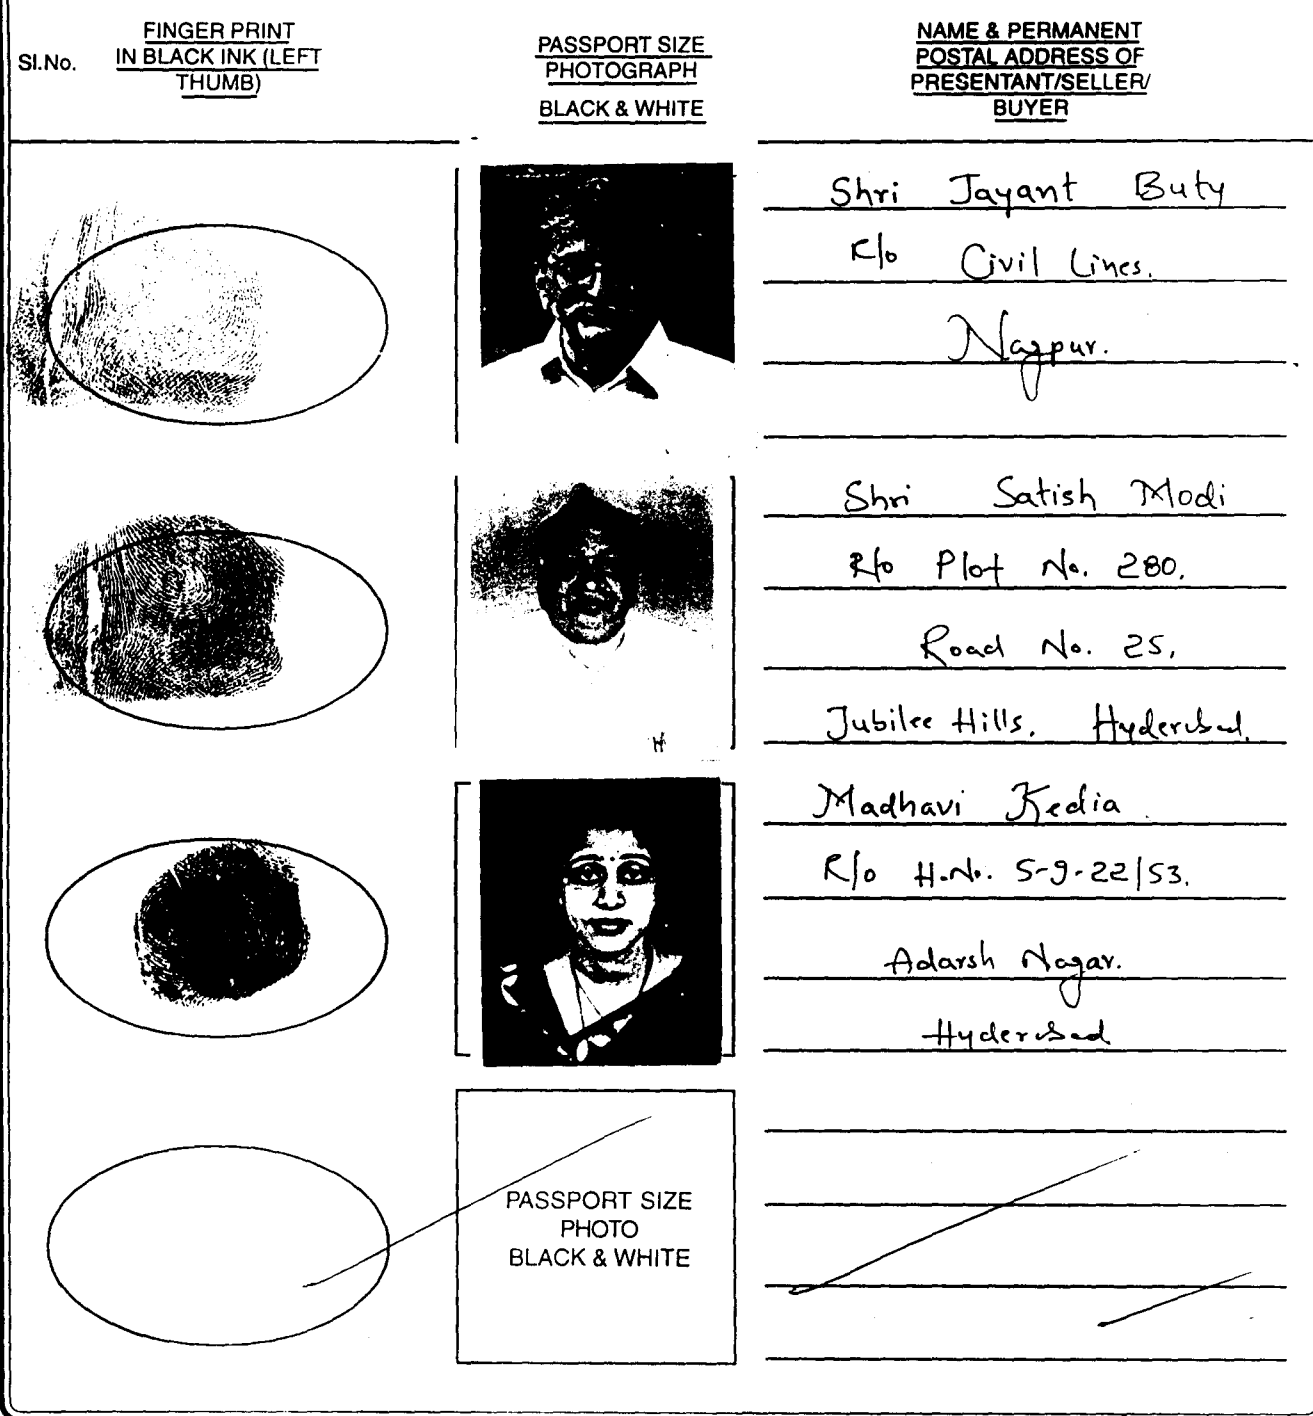 Sl.No.
FINGER PRINT
IN BLACK INK (LEFT
THUMB)
PASSPORT SIZE
PHOTOGRAPH
BLACK & WHITE
NAME & PERMANENT
POSTAL ADDRESS OF
PRESENTANT/SELLER/
BUYER
Shri Jayant Buty
R/o Civil Lines.
Nagpur.
Shri Satish Modi
R/o Plot No. 280,
Road No. 25,
Jubilee Hills, Hyderabad.
Madhavi Kedia
R/o H.No. 5-9-22/53.
Adarsh Nagar.
Hyderabad
PASSPORT SIZE
PHOTO
BLACK & WHITE